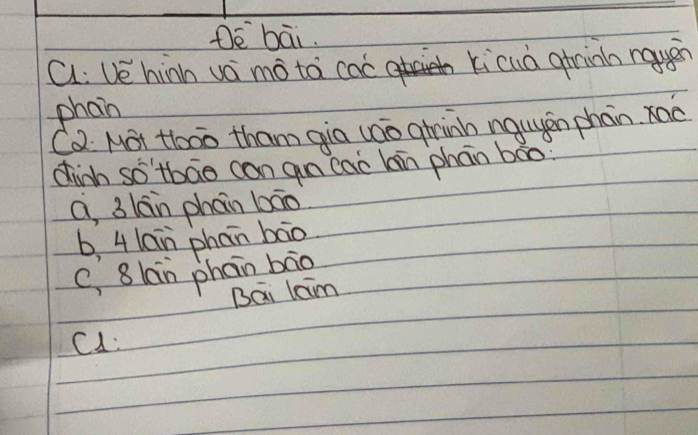 Đề bài.
C1: Vẽ hình và mô tả các kì của qtrình nguyên
phân
C2. Một tbào tham gia vào qtrình nguyên phân. xác
định số tbào con qua các lần phân bào:
a, 3 lần phân bào
b, 4 lần phân bào
c, 8 lần phân bào
Bài làm
C1: